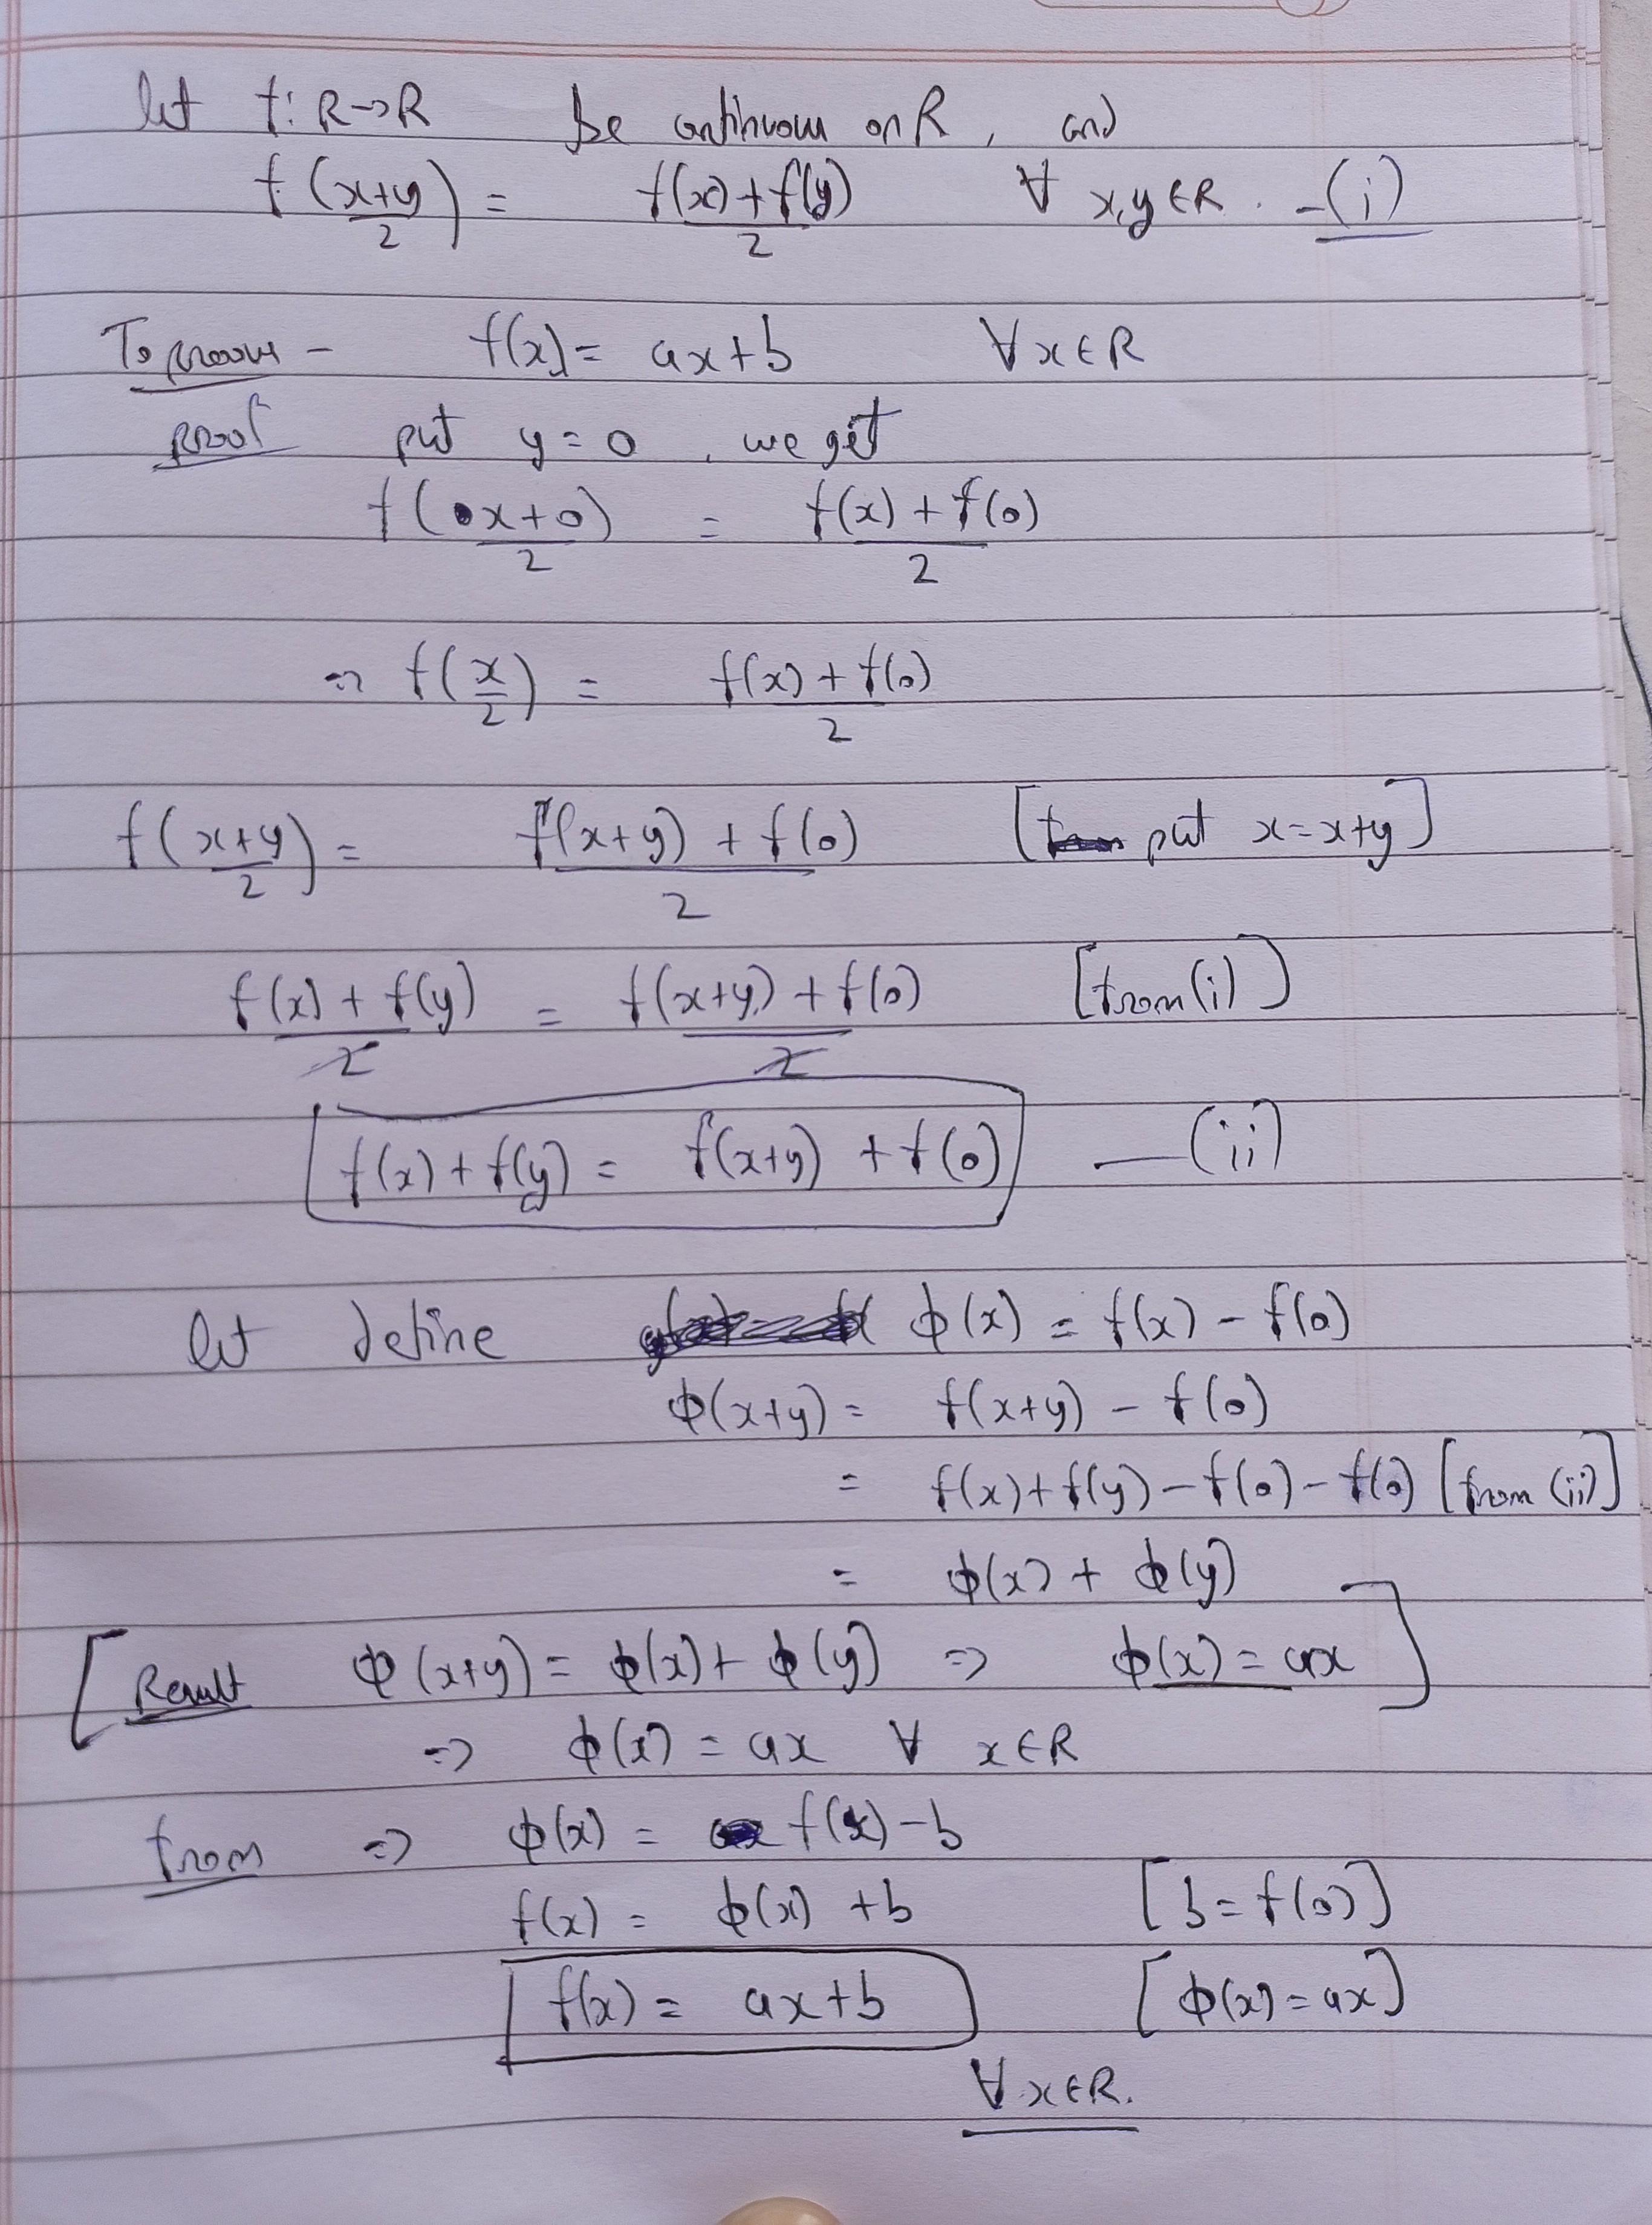 let f: R→R be continuous on R, and
f(x+y/2) = f(x)+f(y)/2 ∀ x,y∈R. -(i)
To proove - f(x) = ax+b ∀x∈R
proof put y=0, we get
f(x+0/2) = f(x)+f(0)/2
⇒ f(x/2) = f(x)+f(0)/2
f(x+y/2) = f(x+y)+f(0)/2 [put x=x+y]
f(x)+f(y)/2 = f(x+y)+f(0)/2 [from(i)]
f(x)+f(y) = f(x+y)+f(0) —(ii)
let define ϕ(x) = f(x) - f(0)
ϕ(x+y) = f(x+y) - f(0)
= f(x)+f(y)-f(0)-f(0) [from (ii)]
= ϕ(x) + ϕ(y)
[Result ϕ(x+y) = ϕ(x)+ϕ(y) ⇒ ϕ(x)=ax]
⇒ ϕ(x) = ax ∀ x∈R
from ⇒ ϕ(x) = f(x)-b
f(x) = ϕ(x) +b [b=f(0)]
f(x) = ax+b [ϕ(x)=ax]
∀x∈R.